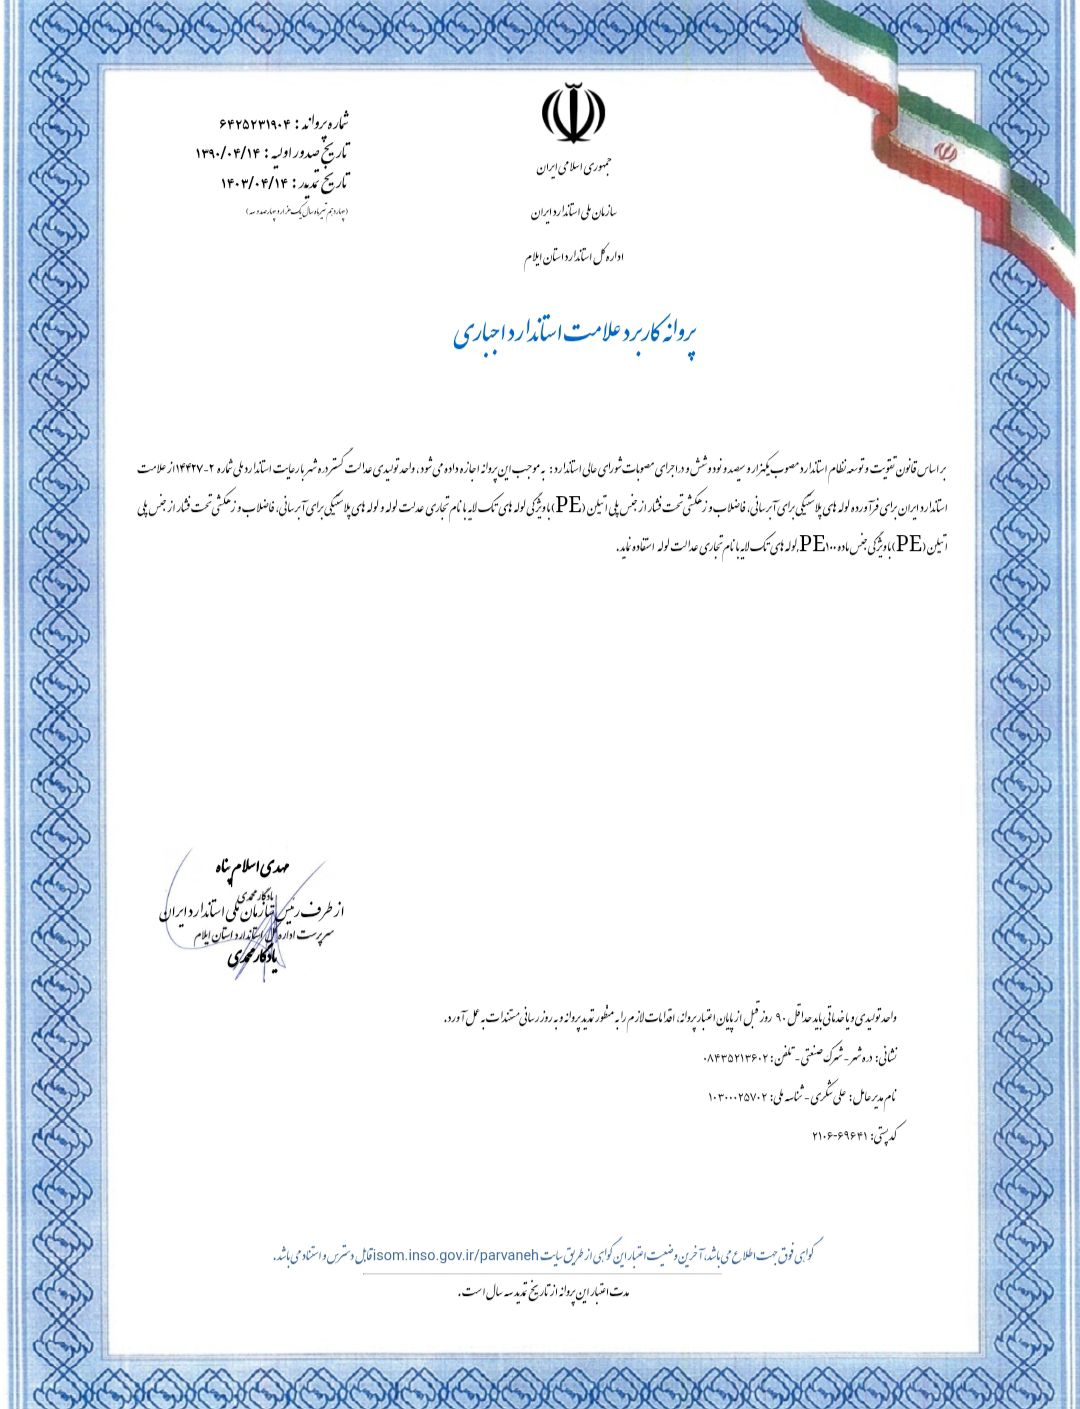 شماره پروانه : ۶۴۲۵۲۳۱۹۰۴
تاریخ صدور اولیه : ۱۳۹۰/۰۴/۱۴
تاریخ تمدید : ۱۴۰۳/۰۴/۱۴
(چهاردهم تیرماه سال یک هزار و چهارصد و سه)
جمهوری اسلامی ایران
سازمان ملی استاندارد ایران
اداره کل استاندارد استان ایلام
پروانه کاربرد علامت استاندارد اجباری
بر اساس قانون تقویت و توسعه نظام استاندارد مصوب یکهزار و سیصد و نود و شش و در اجرای مصوبات شورای عالی استاندارد : به موجب این پروانه اجازه داده می شود ، واحد تولیدی عدالت گستر دره شهر با رعایت استاندارد ملی شماره ۲-۱۴۴۲۷ از علامت
استاندارد ایران برای فرآورده لوله های پلاستیکی برای آبرسانی، فاضلاب و زهکشی تحت فشار از جنس پلی اتیلن (PE) با ویژگی لوله های تک لایه با نام تجاری عدالت لوله و لوله های پلاستیکی برای آبرسانی، فاضلاب و زهکشی تحت فشار از جنس پلی
اتیلن (PE) با ویژگی جنس ماده PE۱۰۰,لوله های تک لایه با نام تجاری عدالت لوله استفاده نماید.
مهدی اسلام پناه
یادگار محمدی
از طرف رئیس سازمان ملی استاندارد ایران
سرپرست اداره کل استاندارد استان ایلام
یادگار محمدی
واحد تولیدی و یا خدماتی باید حداقل ۹۰ روز قبل از پایان اعتبار پروانه، اقدامات لازم را به منظور تمدید پروانه و به روزرسانی مستندات به عمل آورد.
نشانی: دره شهر - شهرک صنعتی - تلفن: ۰۸۴۳۵۲۱۳۶۰۲
نام مدیرعامل: علی شکری - شناسه ملی: ۱۰۳۰۰۰۲۵۷۰۲
کد پستی: ۶۹۶۴۱-۲۱۰۶
گواهی فوق جهت اطلاع می باشد، آخرین وضعیت اعتبار این گواهی از طریق سایت isom.inso.gov.ir/parvaneh قابل دسترس و استناد می باشد.
مدت اعتبار این پروانه از تاریخ تمدید سه سال است.